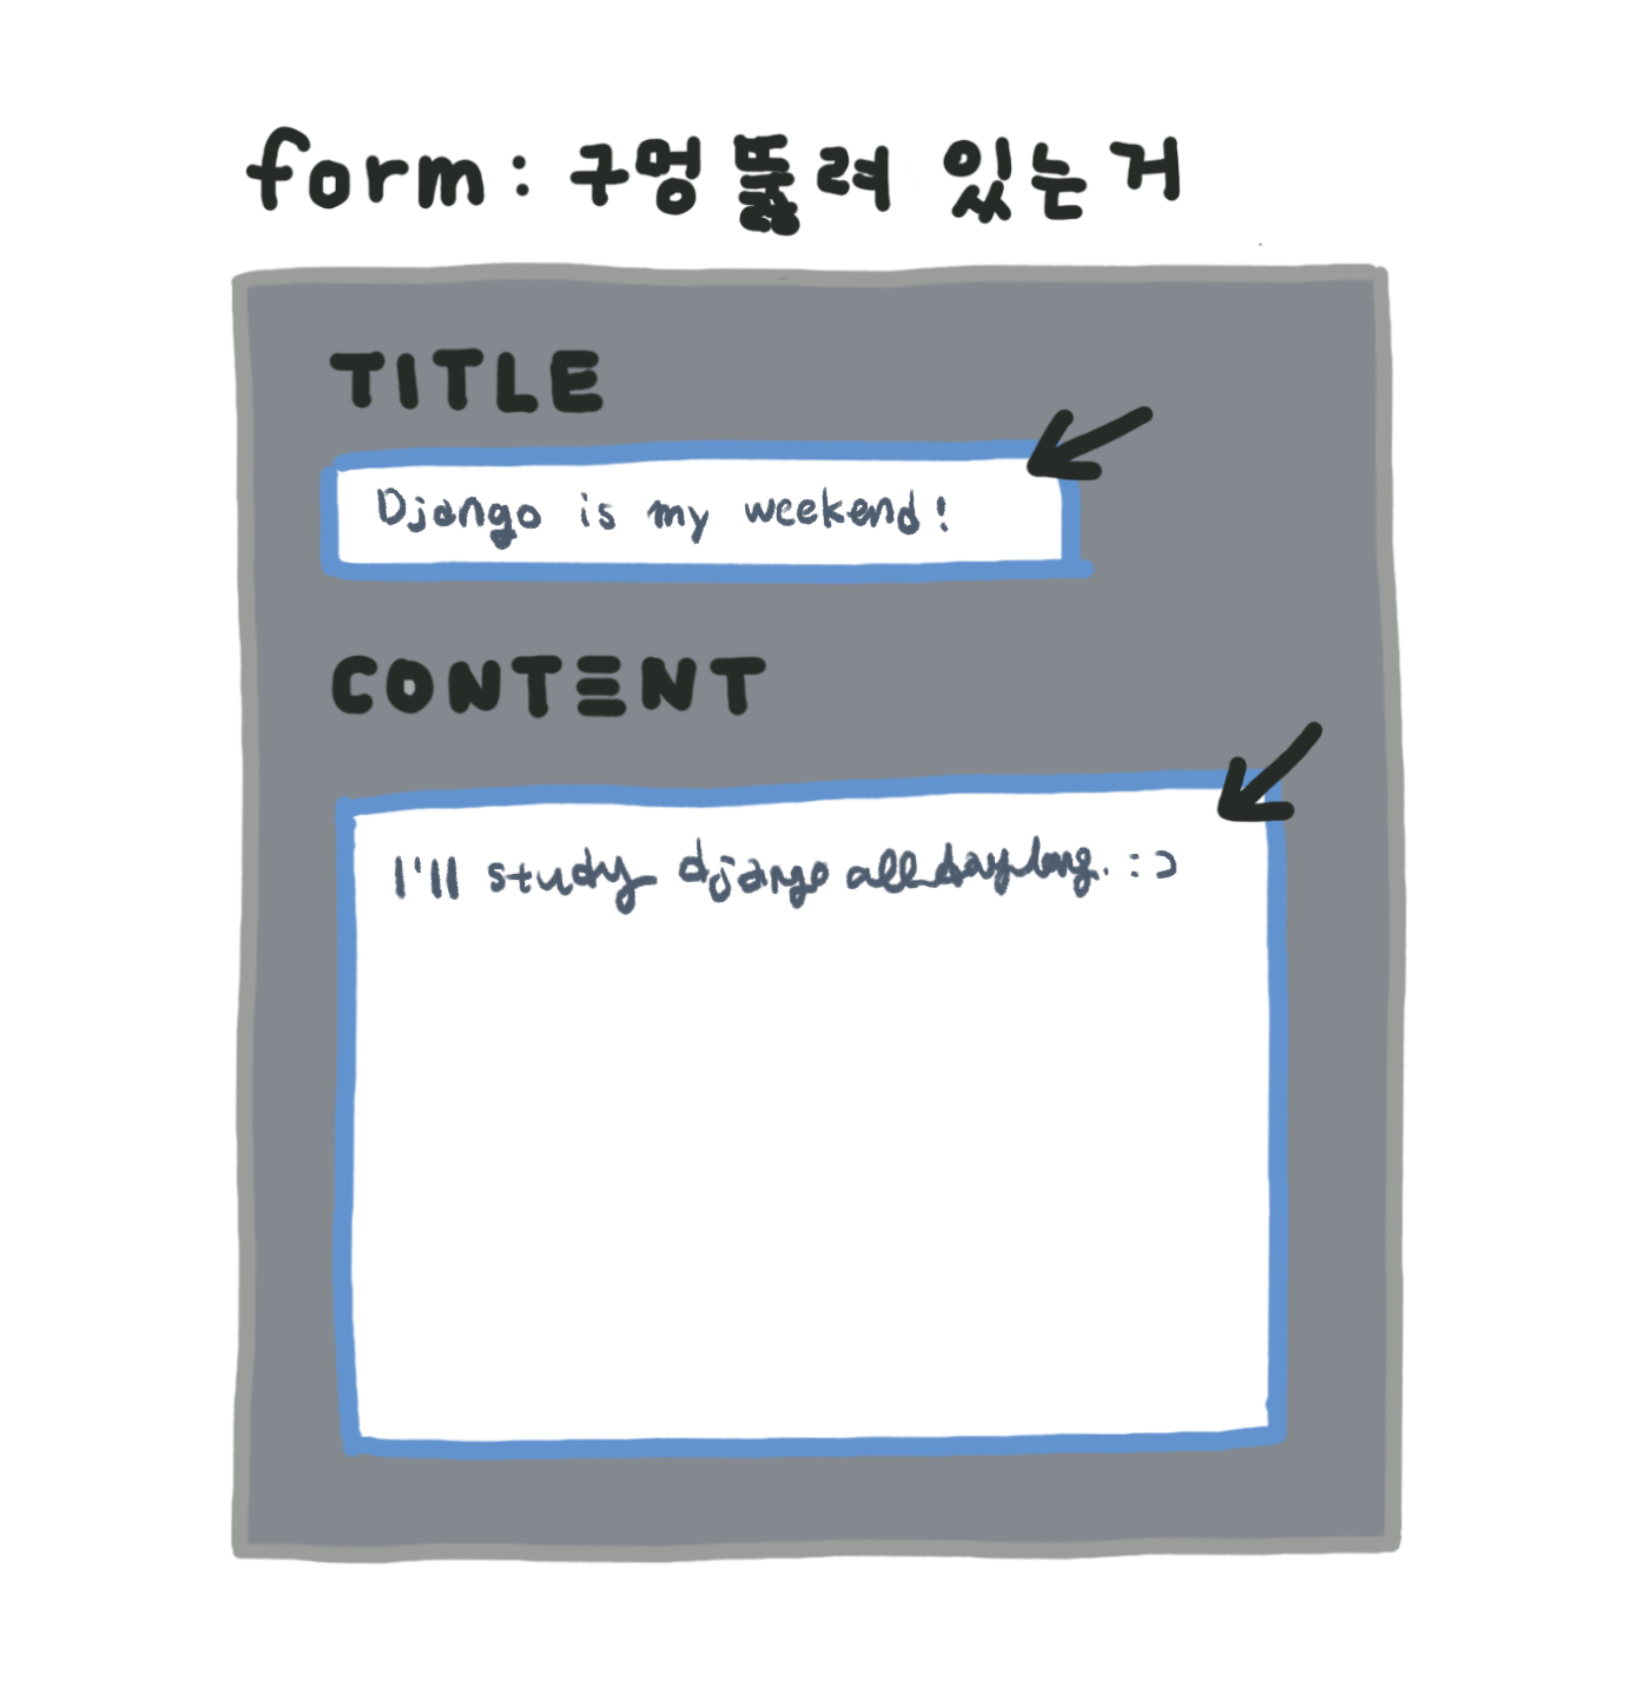 form: 구멍 뚫려 있는거
TITLE
Django is my weekend!
CONTENT
I'll study django all day long. :)